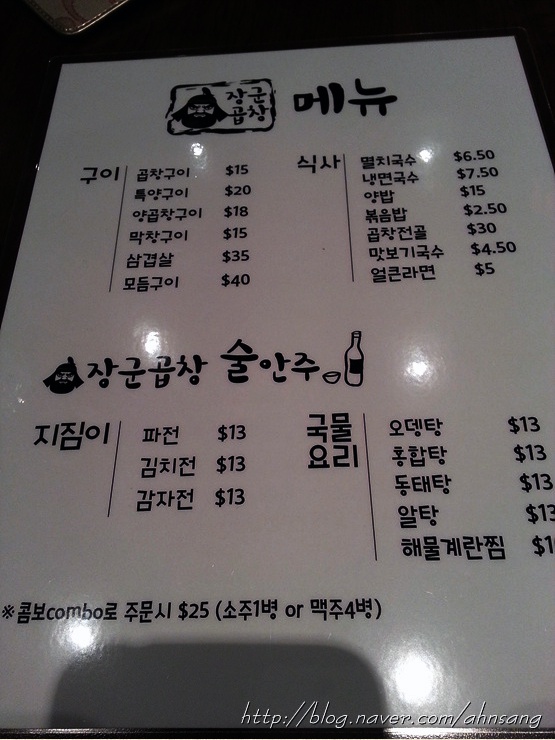 장군
곱창
메뉴
구이
곱창구이 $15
특양구이 $20
양곱창구이 $18
막창구이 $15
삼겹살 $35
모듬구이 $40
식사
멸치국수 $6.50
냉면국수 $7.50
양밥 $15
볶음밥 $2.50
곱창전골 $30
맛보기국수 $4.50
얼큰라면 $5
장군곱창 술안주
지짐이
파전 $13
김치전 $13
감자전 $13
국물
요리
오뎅탕 $13
홍합탕 $13
동태탕 $13
알탕 $13
해물계란찜
※콤보combo로 주문시 $25 (소주1병 or 맥주4병)
http://blog.naver.com/ahnsang